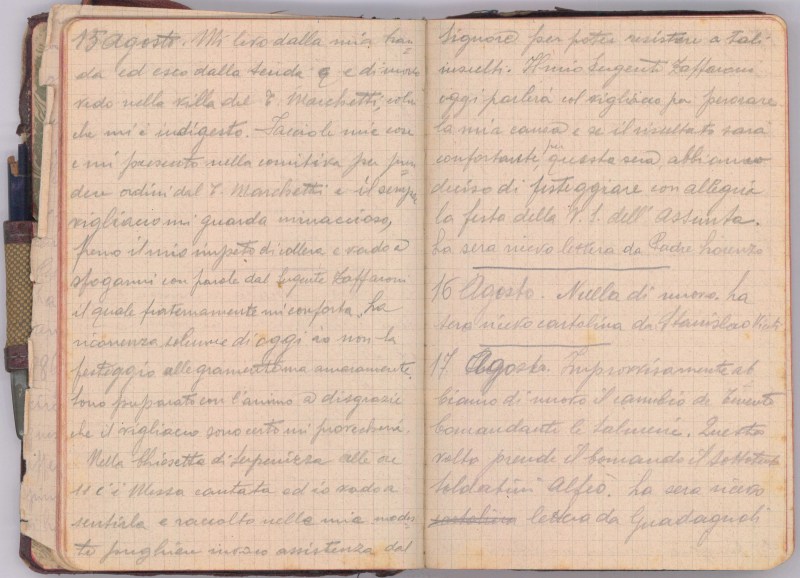 15 Agosto. Mi levo dalla mia bran=
da ed esco dalla tenda e di nuovo
vedo nella villa del T. Marchetti, colui
che mi è indigesto. Faccio le mie cose
e mi presento nella comitiva per pren=
dere ordini dal T. Marchetti e il sempre
vigliacco mi guarda minaccioso,
freno il mio impeto di collera e vado a
sfogarmi con parole dal Sergente Zaffaroni
il quale fraternamente mi conforta, la
ricorrenza solenne di oggi io non la
festeggio allegramente ma amaramente.
Sono preparato con l'animo a disgrazie
che il vigliacco sono certo mi procurerà.
Nella Chiesetta di Supenizza alle ore
11 c'è Messa cantata ed io vado a
sentirla e raccolto nella mia modes
ta preghiera invoco assistenza dal
Signore per poter resistere a tali
insulti. Il mio Sergente Zaffaroni
oggi parlerà col vigliacco per perorare
la mia causa e se il risultato sarà
confortante per questa sera abbiamo
deciso di festeggiare con allegria
la festa della V. S. dell' Assunta.
La sera ricevo lettera da Padre Lorenzo
16 Agosto. Nulla di nuovo. La
sera ricevo cartolina da Stanislao
17 Agosto. Improvvisamente ab
biamo di nuovo il cambio de Tenente
Comandante le Salmerie. Questa
volta prende il Comando il Sottotenente
Soldatini Alfeo. La sera ricevo
cartolina lettera da Guadagnoli